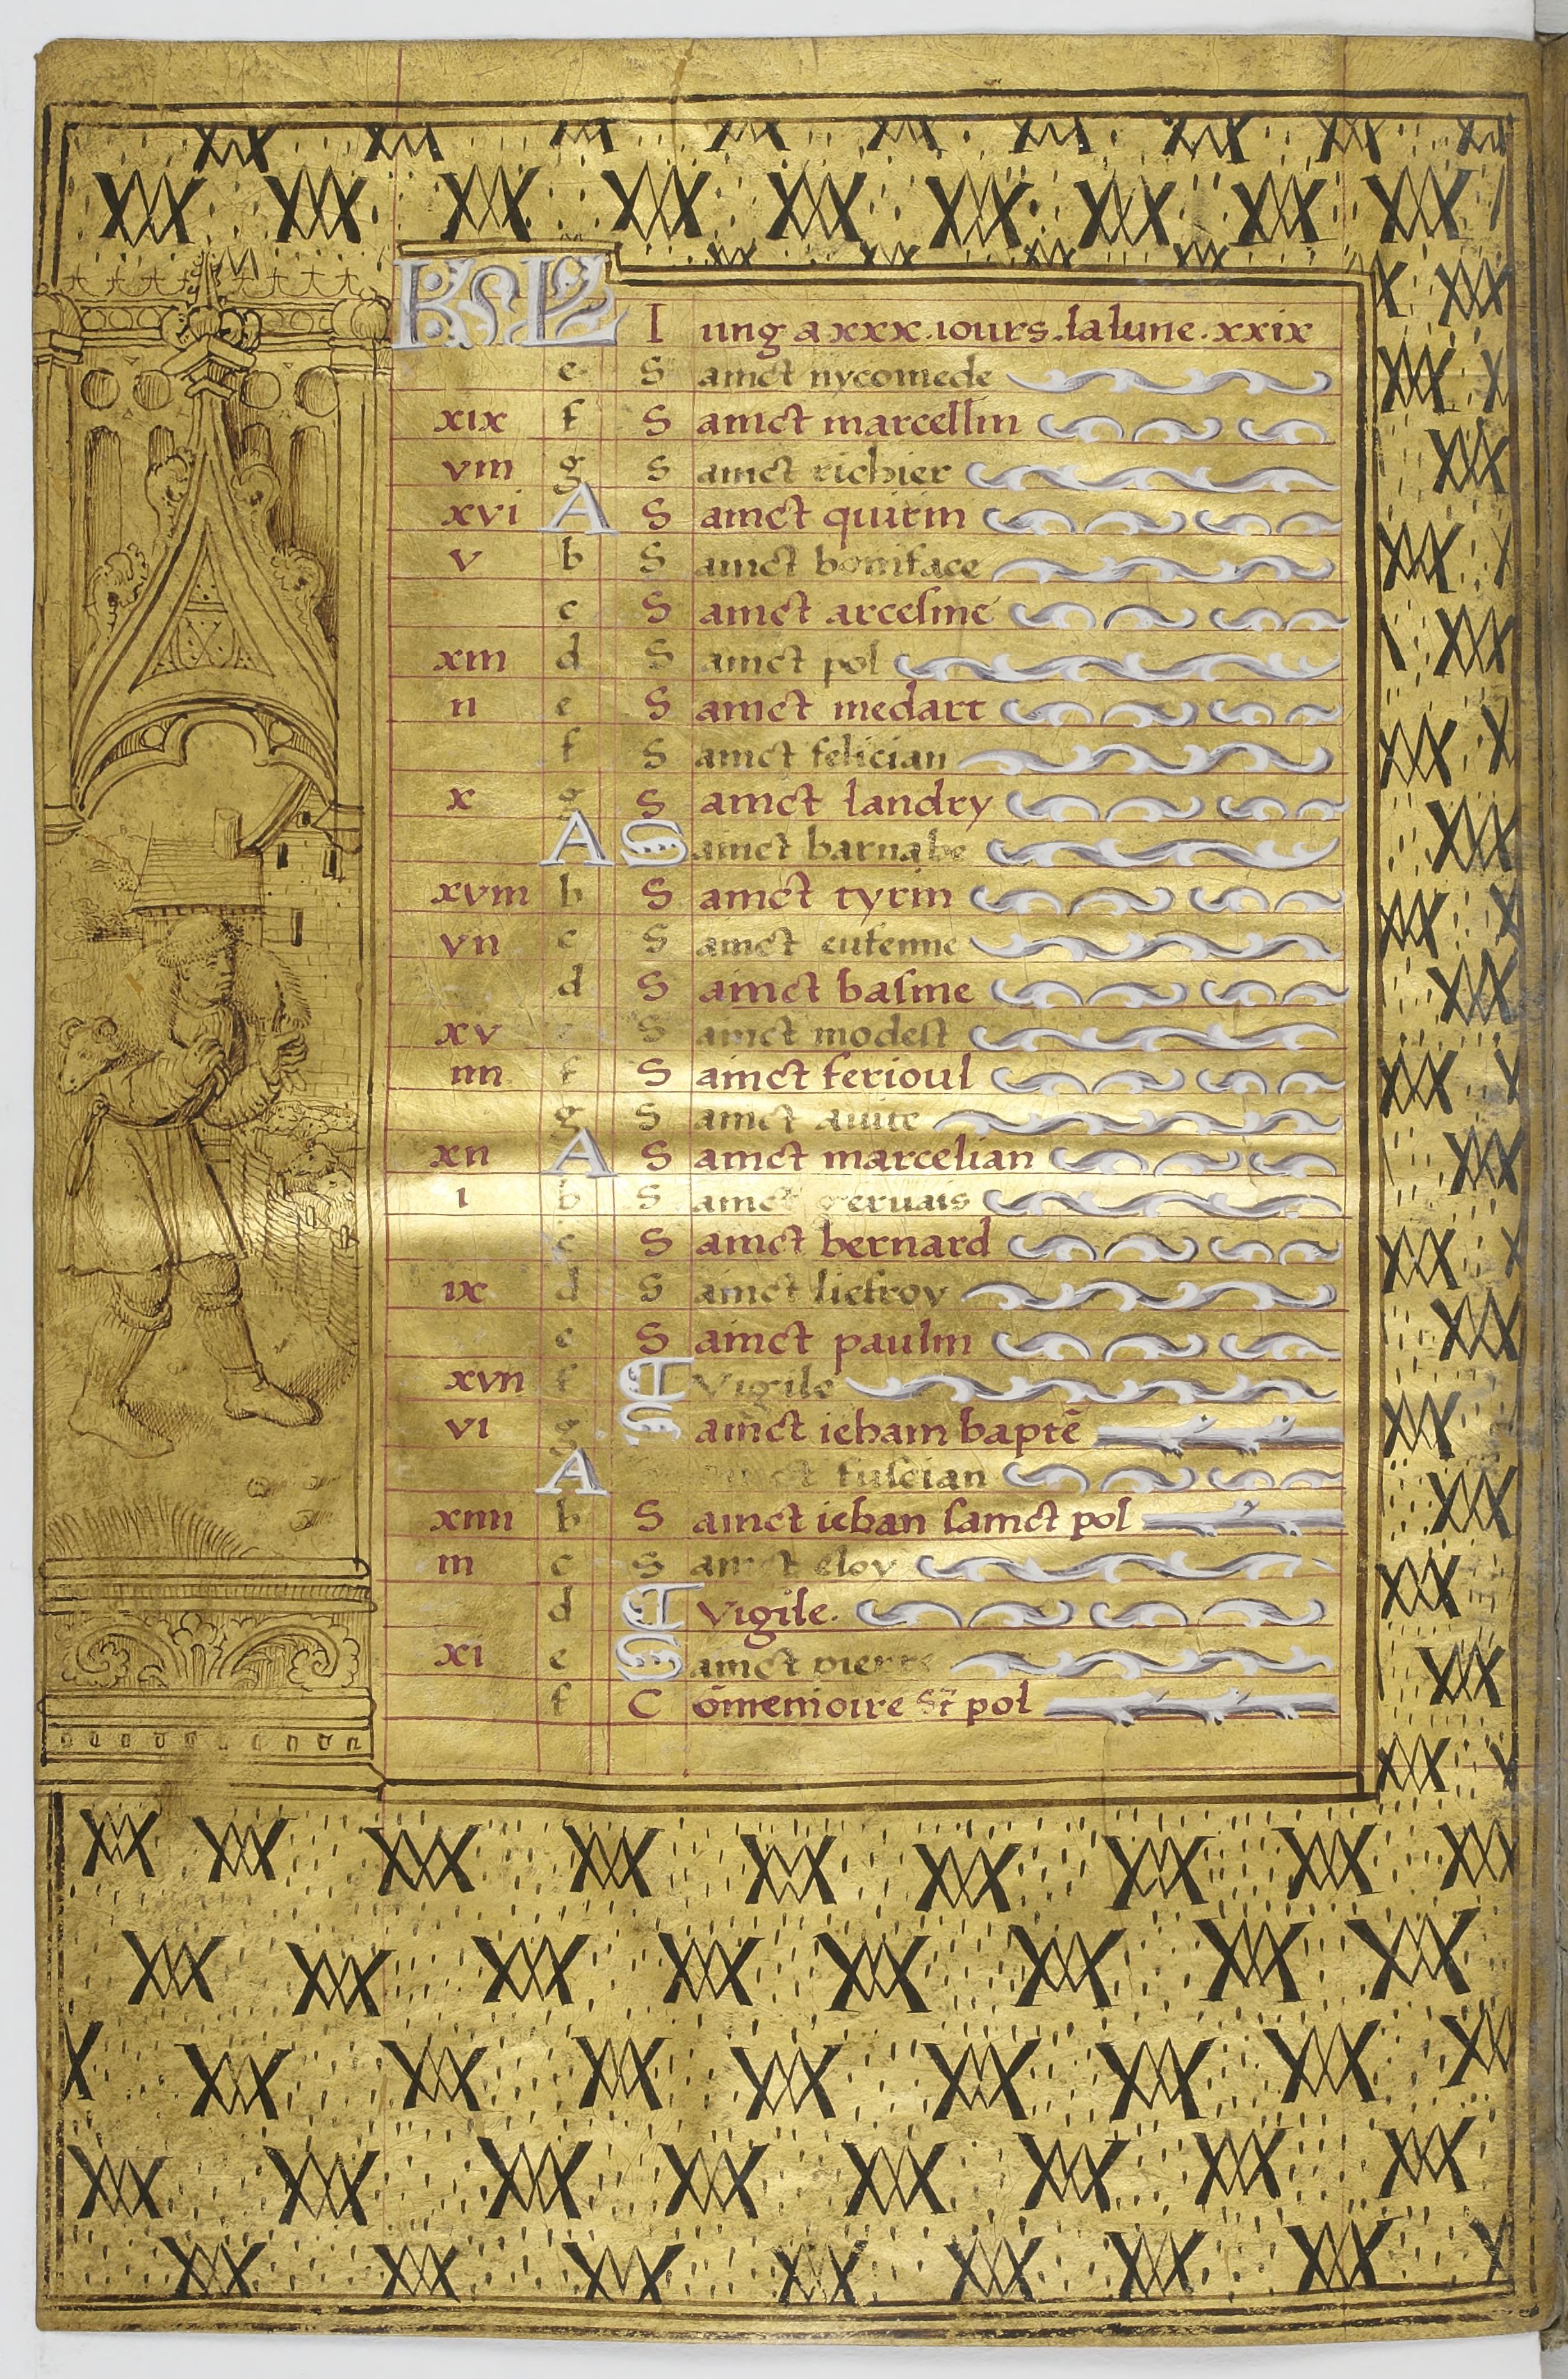 KL Iung a xxx iours. la lune. xxix
e Sainct nycomede
xix f Sainct marcellin
viii g Sainct richier
xvi A Sainct quirin
v b Sainct boniface
c Sainct arcesme
xiii d Sainct pol
ii e Sainct medart
f Sainct felician
x g Sainct landry
A Sainct barnabe
xviii b Sainct cyrin
vii c Sainct
d Sainct basine
xv Sainct modest
iiii f Sainct ferioul
g Sainct auite
xii A Sainct marcelian
i b Sainct geruais
c Sainct bernard
ix d Sainct liefroy
e Sainct paulin
xvii f Vigile
vi g Sainct ieham baptē
A fuscian
xiiii b Sainct iehan sainct pol
iii c Sainct eloy
d Vigile.
xi e Sainct pierre
f Cōmemoire St pol